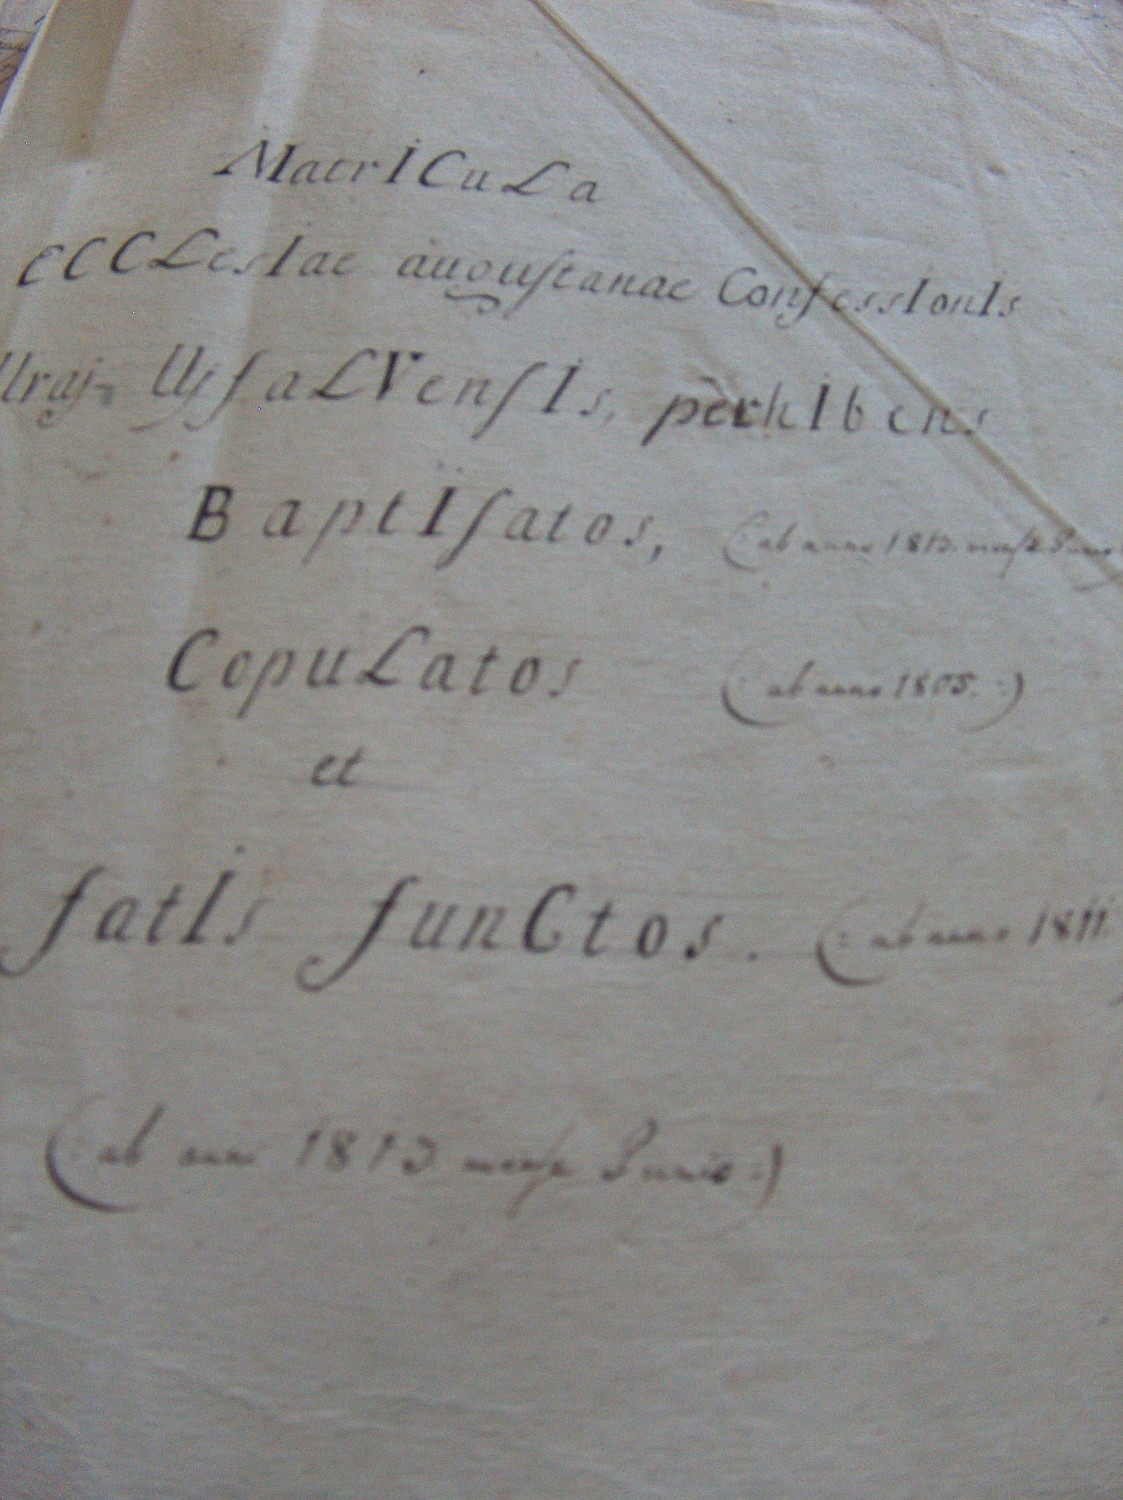 MatrICuLa
eCCLesIae augustanae ConfessIonIs
Uraj UjfaLVensIs, perhIbens
BaptIsatos, (: ab anno 1813. mense Junio
CopuLatos (: ab anno 1805. :)
et
fatIs funCtos. (: ab anno 1811
(: ab anno 1813 mense Junio :)